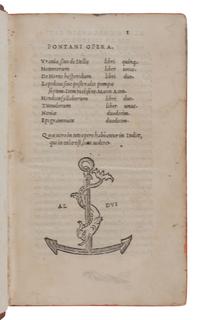 1
PONTANI OPERA.
Vrania, siue de Stellis libri quinq;.
Meteororum liber unus.
De Hortis hesperidum libri duo.
Lepidina siue postorales pompæ
septem. Item Meliseus. Mæon. Acon.
Hendecasyllaborum libri duo.
Tumulorum liber unus.
Neniæ duodecim.
Epigrammata duodecim.
Quæ uero in toto opere habeantur in Indice,
qui in calce est, licet uidere.
AL DVS